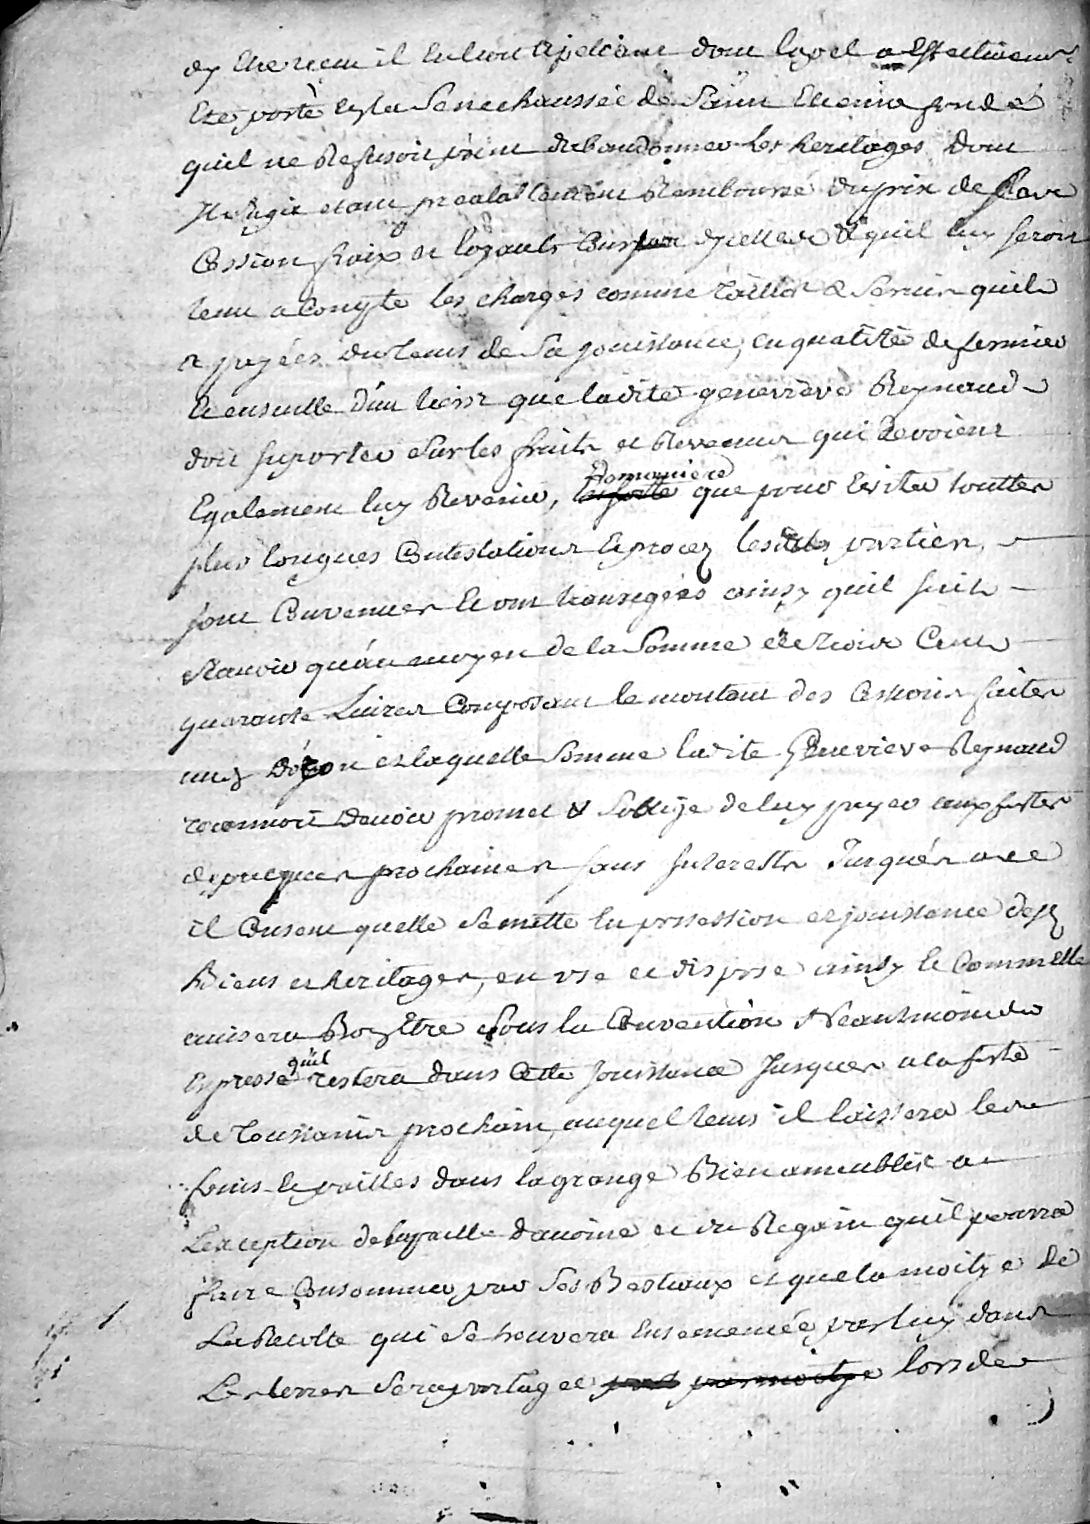 dy Etre reçeu il en leut apellant dont lapel a Effectivemt
Eté porté en la Senechaussée de Saint Etienne fondé
quil ne Refusoit point dabandonner les heritages dont
Il sagit etant prealablement Remboursé du prix de
Cession fraix et loyaults &quil luy seroit
tenu a Compte les charges comme tailles & Servis quil
a payées du tems de Sa jouissance, en qualité de fermier
Et ensuitte d'un tiers que ladite genevieve Reynaud
doit suporter Sur les fruits et Revenus qui devoient
Egalement luy Revenir, Demaniere que pour Eviter touttes
plus longues Contestations & procez lesdites parties
sont Convenues et ont transigées ainsy quil suit
Scavoir quau moyen de la Somme de trois Cent
quarante Livres Composant le montant des Cessions faites
aud Dégon et laquelle Somme ladite Genevieve Reynaud
reconnoit devoir promet & Soblige de luy payer aux festes
de pacques prochaines sans Interests Jusques a ce
il Consent quelle Se mette en possession et jouissance desd
Biens et heritages, en use et dispose ainsy Et Comm Elle
avisera Bon Etre Sous la Convention Neantmoins
Expresse quil restera dans Cette Jouissance Jusques a la feste
de toussaint prochain, auquel tems il laissera les
foins & pailles dans la grange Bien ameublée a
Lexception de la paille davoine et du Regain quil pourra
faire Consommer par Ses Bestiaux et que la moitye de
La Recolte qui Se trouvera Ensemencée par luy dans
Les terres Sera partagée par moitye lors de